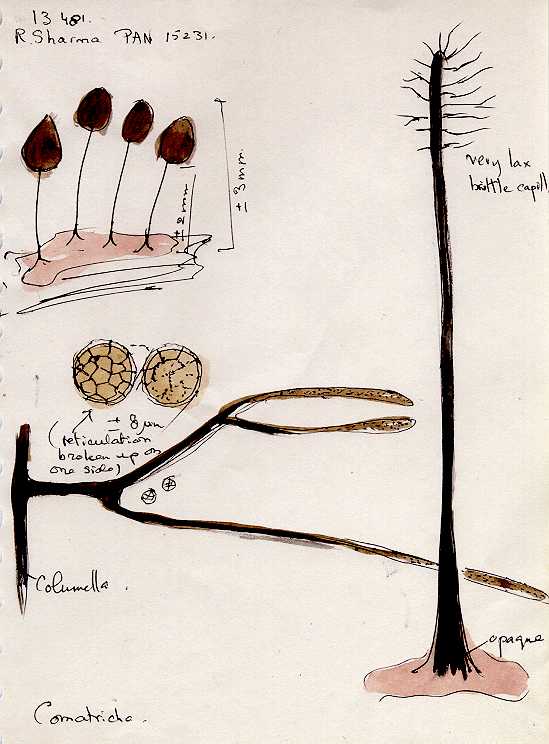 13 481.
R. Sharma PAN 15231.
± 3 mm.
± 2 mm
very lax
brittle capill
± 8 µm
(reticulation
broken up on
one side)
Columella.
opaque
Comatricha.